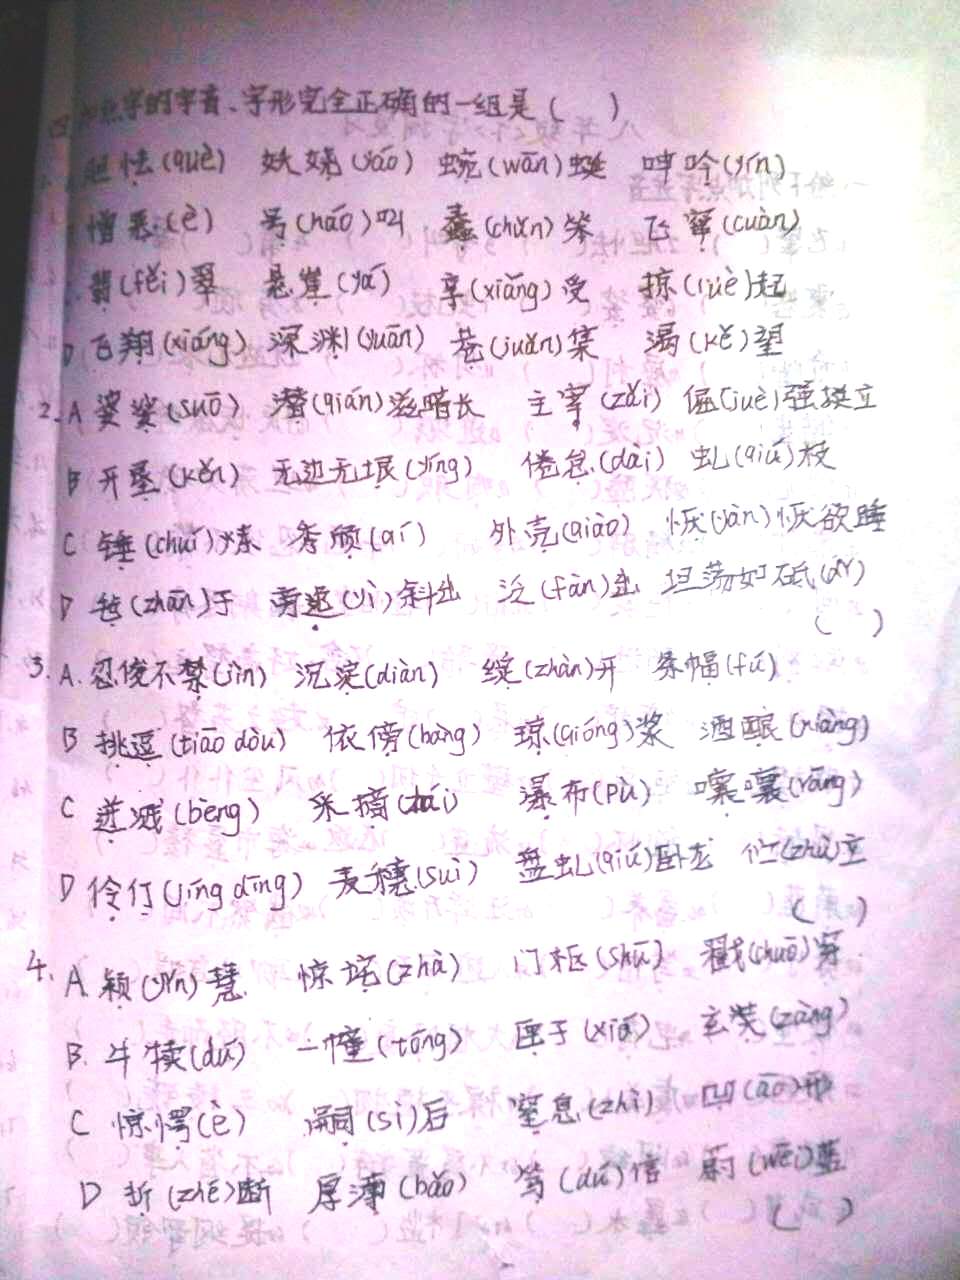 四 点字的字音、字形完全正确的一组是 ( )
胆怯(què) 妖娆(yáo) 蜿(wān)蜒 呻吟(yín)
憎恶(è) 号(háo)叫 蠢(chǔn)笨 飞窜(cuàn)
翡(fěi)翠 悬崖(yá) 享(xiǎng)受 掠(lüè)起
D 飞翔(xiáng) 深渊(yuān) 卷(juǎn)集 渴(kě)望
2. A 婆娑(suō) 潜(qián)滋暗长 主宰(zǎi) 倔(jué)强挺立
B 开垦(kěn) 无边无垠(yíng) 倦怠(dài) 虬(qiú)枝
C 锤(chuí)炼 秀颀(qí) 外壳(qiào) 恹(yàn)恹欲睡
D 毡(zhān)子 旁逸(yì)斜出 泛(fàn)出 坦荡如砥(dǐ)
( )
3. A. 忍俊不禁(jìn) 沉淀(diàn) 绽(zhàn)开 条幅(fú)
B 挑逗(tiāo dòu) 依傍(bàng) 琼(qióng)浆 酒酿(niàng)
C 迸溅(bèng) 采摘(zhāi) 瀑布(pù) 嚷嚷(rāng)
D 伶仃(líng dīng) 麦穗(suì) 盘虬(qiú)卧龙 伫(zhù)立
( )
4. A. 颖(yǐn)慧 惊诧(zhà) 门枢(shū) 戳(chuō)穿
B. 牛犊(dú) 一幢(tóng) 匣子(xiá) 玄奘(zàng)
C 惊愕(è) 嗣(sì)后 窒息(zhì) 凹(āo)形
D 折(zhé)断 厚薄(báo) 笃(dǔ)信 蔚(wèi)蓝
( )